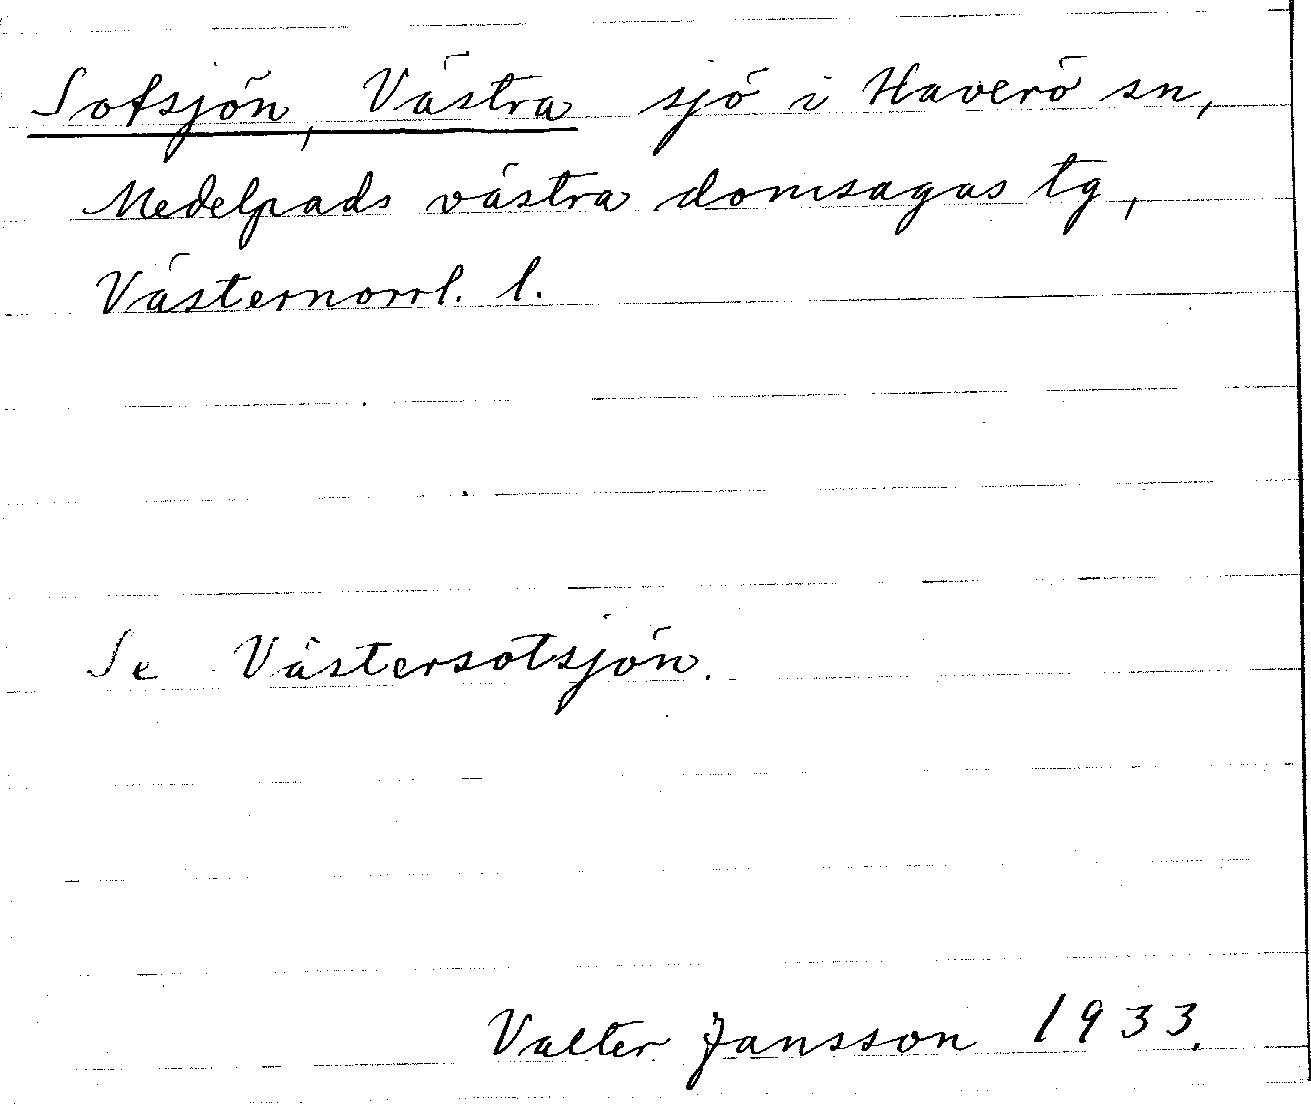 Sotsjön, Västra sjö i Haverö sn,
Medelpads västra domsagas tg,
Västernorrl. l.
Se Västersotsjön.
Valter Jansson 1933.